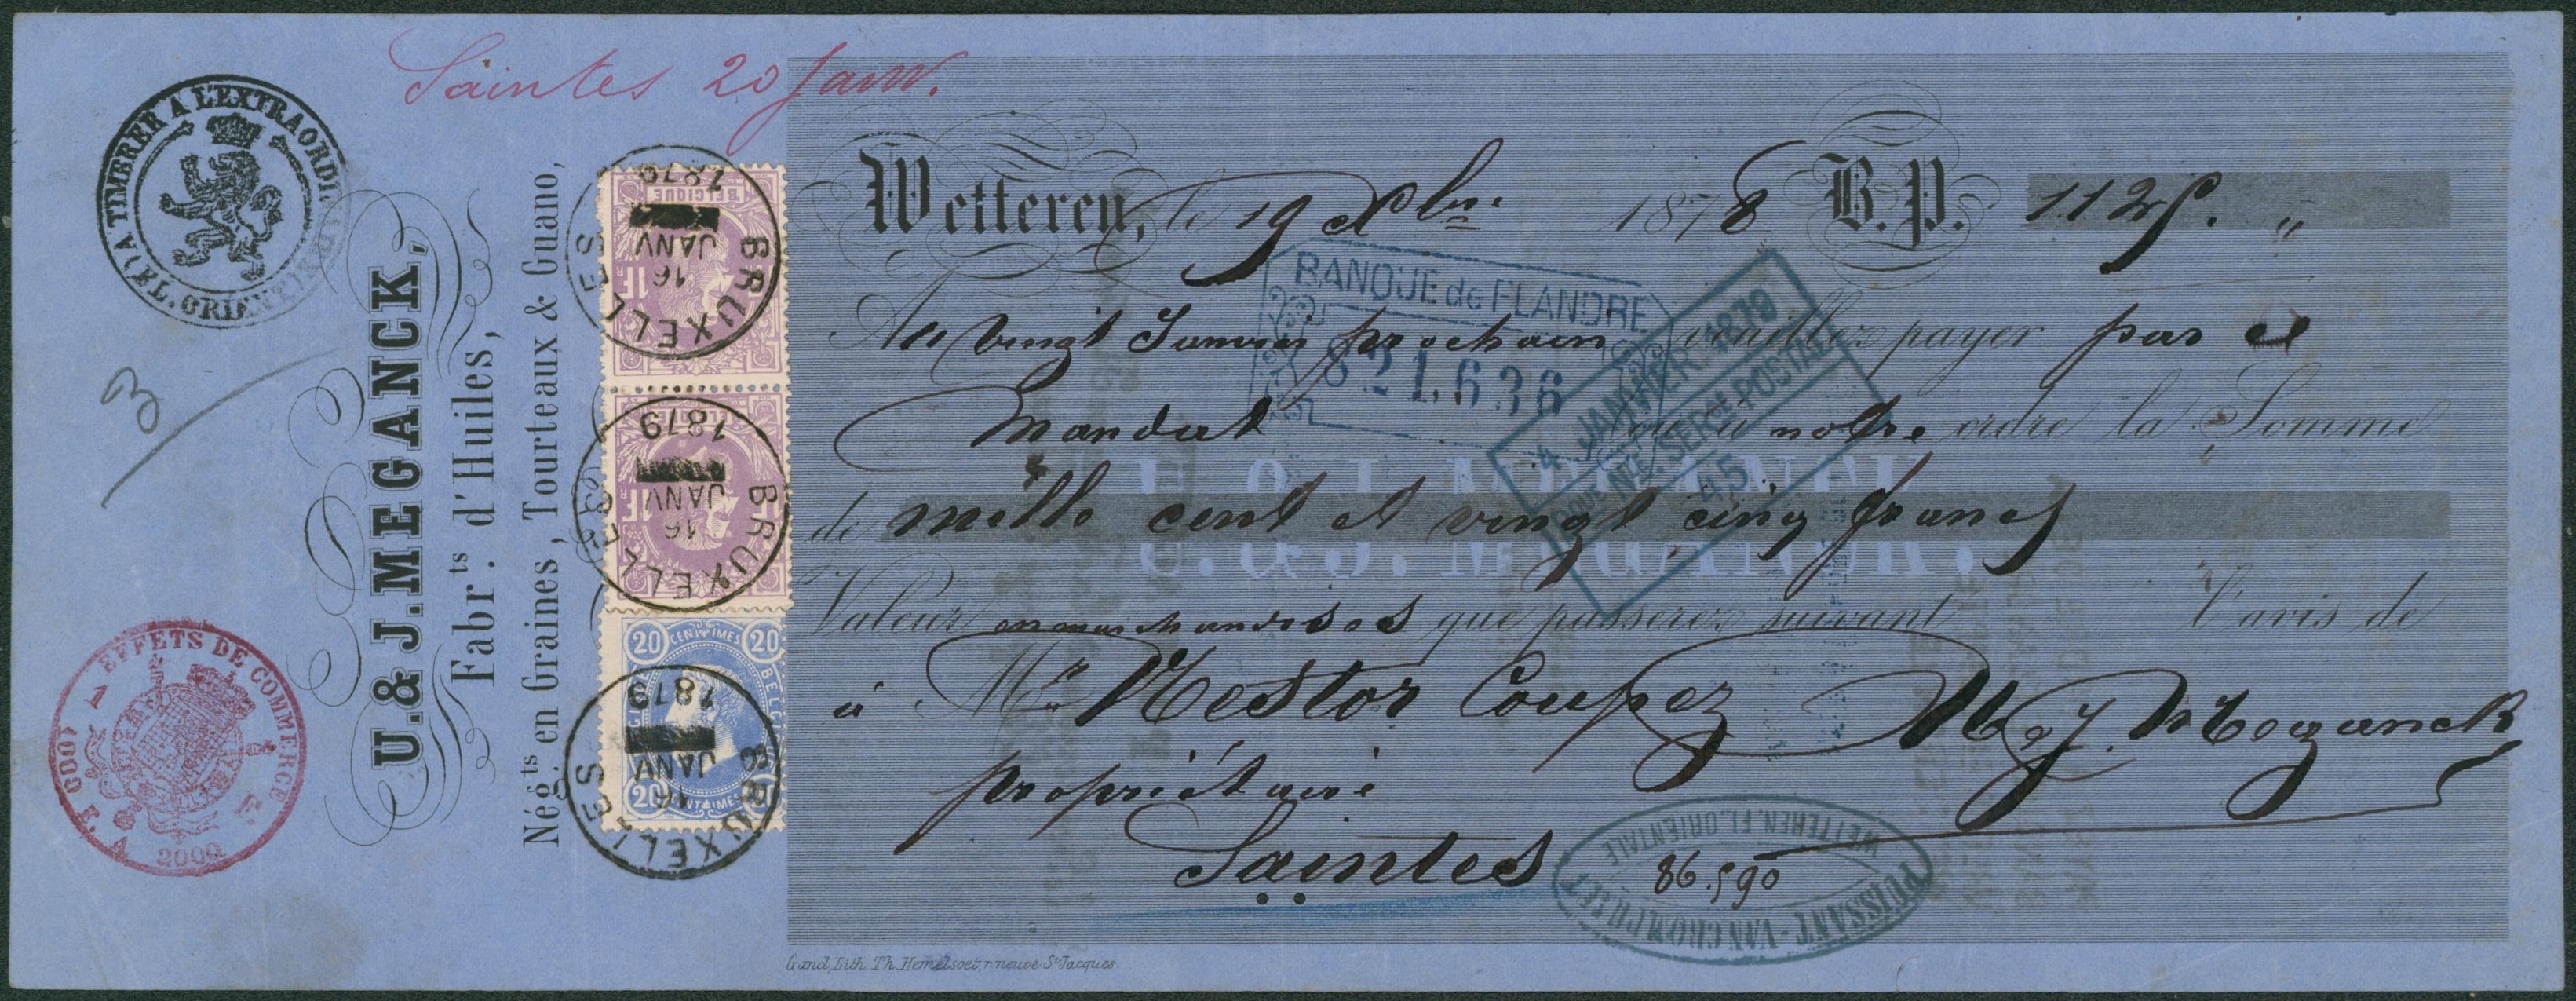 Saintes 20 Janv.
A TIMBRER A L'EXTRAORDIN
(FL. ORIENT
3
U. & J. MEGANCK,
Fabr.ts d'Huiles,
Nég.ts en Graines, Tourteaux & Guano,
EFFETS DE COMMERCE
2000
BELGIQUE
1F
BRUXELLES
16
JANV
1879
1F
BRUXELLES
16
JANV
1879
20 CENTIMES 20
BRUXELLES
JANV
1879
20 CENTIMES
Wetteren, le 19 Xbre 1878 B.P. 1125. "
BANQUE de FLANDRE
821.636
4 JANVIER 1879
SERCE POSTAL
45
Au vingt Janvier prochain veuillez payer par ce
Mandat à notre ordre la Somme
de mille cent et vingt cinq francs
U. & J. MEGANCK.
Valeur en marchandises que passerez suivant l'avis de
à Mr Nestor Coupez U & J. Meganck
propriétaire
Saintes
PUISSANT-VANCROMPHAUT
WETTEREN. FL. ORIENTALE
86.590
Gand, Lith. Th. Hemelsoet, r. neuve St Jacques.